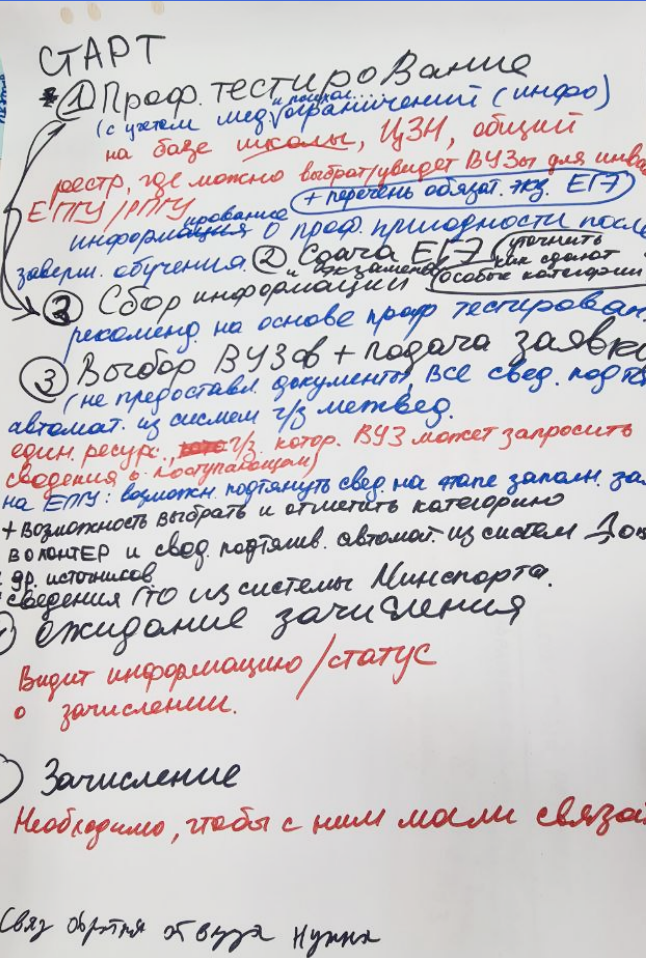 СТАРТ
* ① Проф. тестирование
(с учетом мед. и психол... ограничений (инфо)
на базе школы, ЦЗН, общий
реестр, где можно выбрат/увидет ВУЗы для инва
ЕПГУ/РПГУ + перечень обязат. экз. ЕГЭ
информирование о проф. пригодности после
заверш. обучения. ② Сдача ЕГЭ (уточнить
и экзамена как сдают
особые категории
③ Сбор информации
рекоменд. на основе проф тестирован
③ Выбор ВУЗов + подача заявк
(не предоставл. документы, все свед. подтя
автомат. из систем ч/з межвед.
един. ресурс, ч/з котор. ВУЗ может запросить
сведения о поступающем)
на ЕПГУ: возможн. подтянуть свед. на этапе заполн. за
+ возможность выбрать и отметить категорию
волонтЕР и свед. подтягив. автомат. из систем До
др. источников
сведения ГТО из системы Минспорта.
ожидание зачисления
Видит информацию/статус
о зачислении.
Зачисление
Необходимо, чтобы с ним могли связа
Связ обратня от вуза нужна